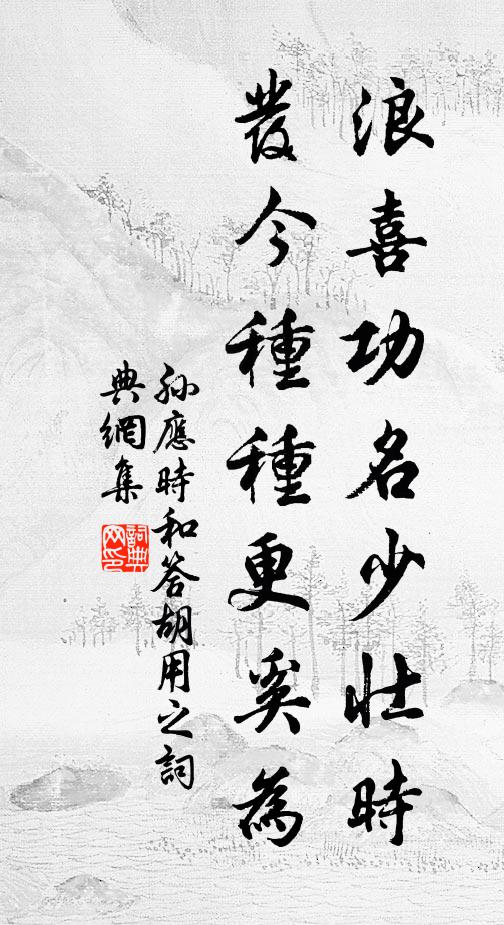 浪喜功名少壯時
發今種種更奚為
孫應時和答胡用之詞
典網集
詞典網印